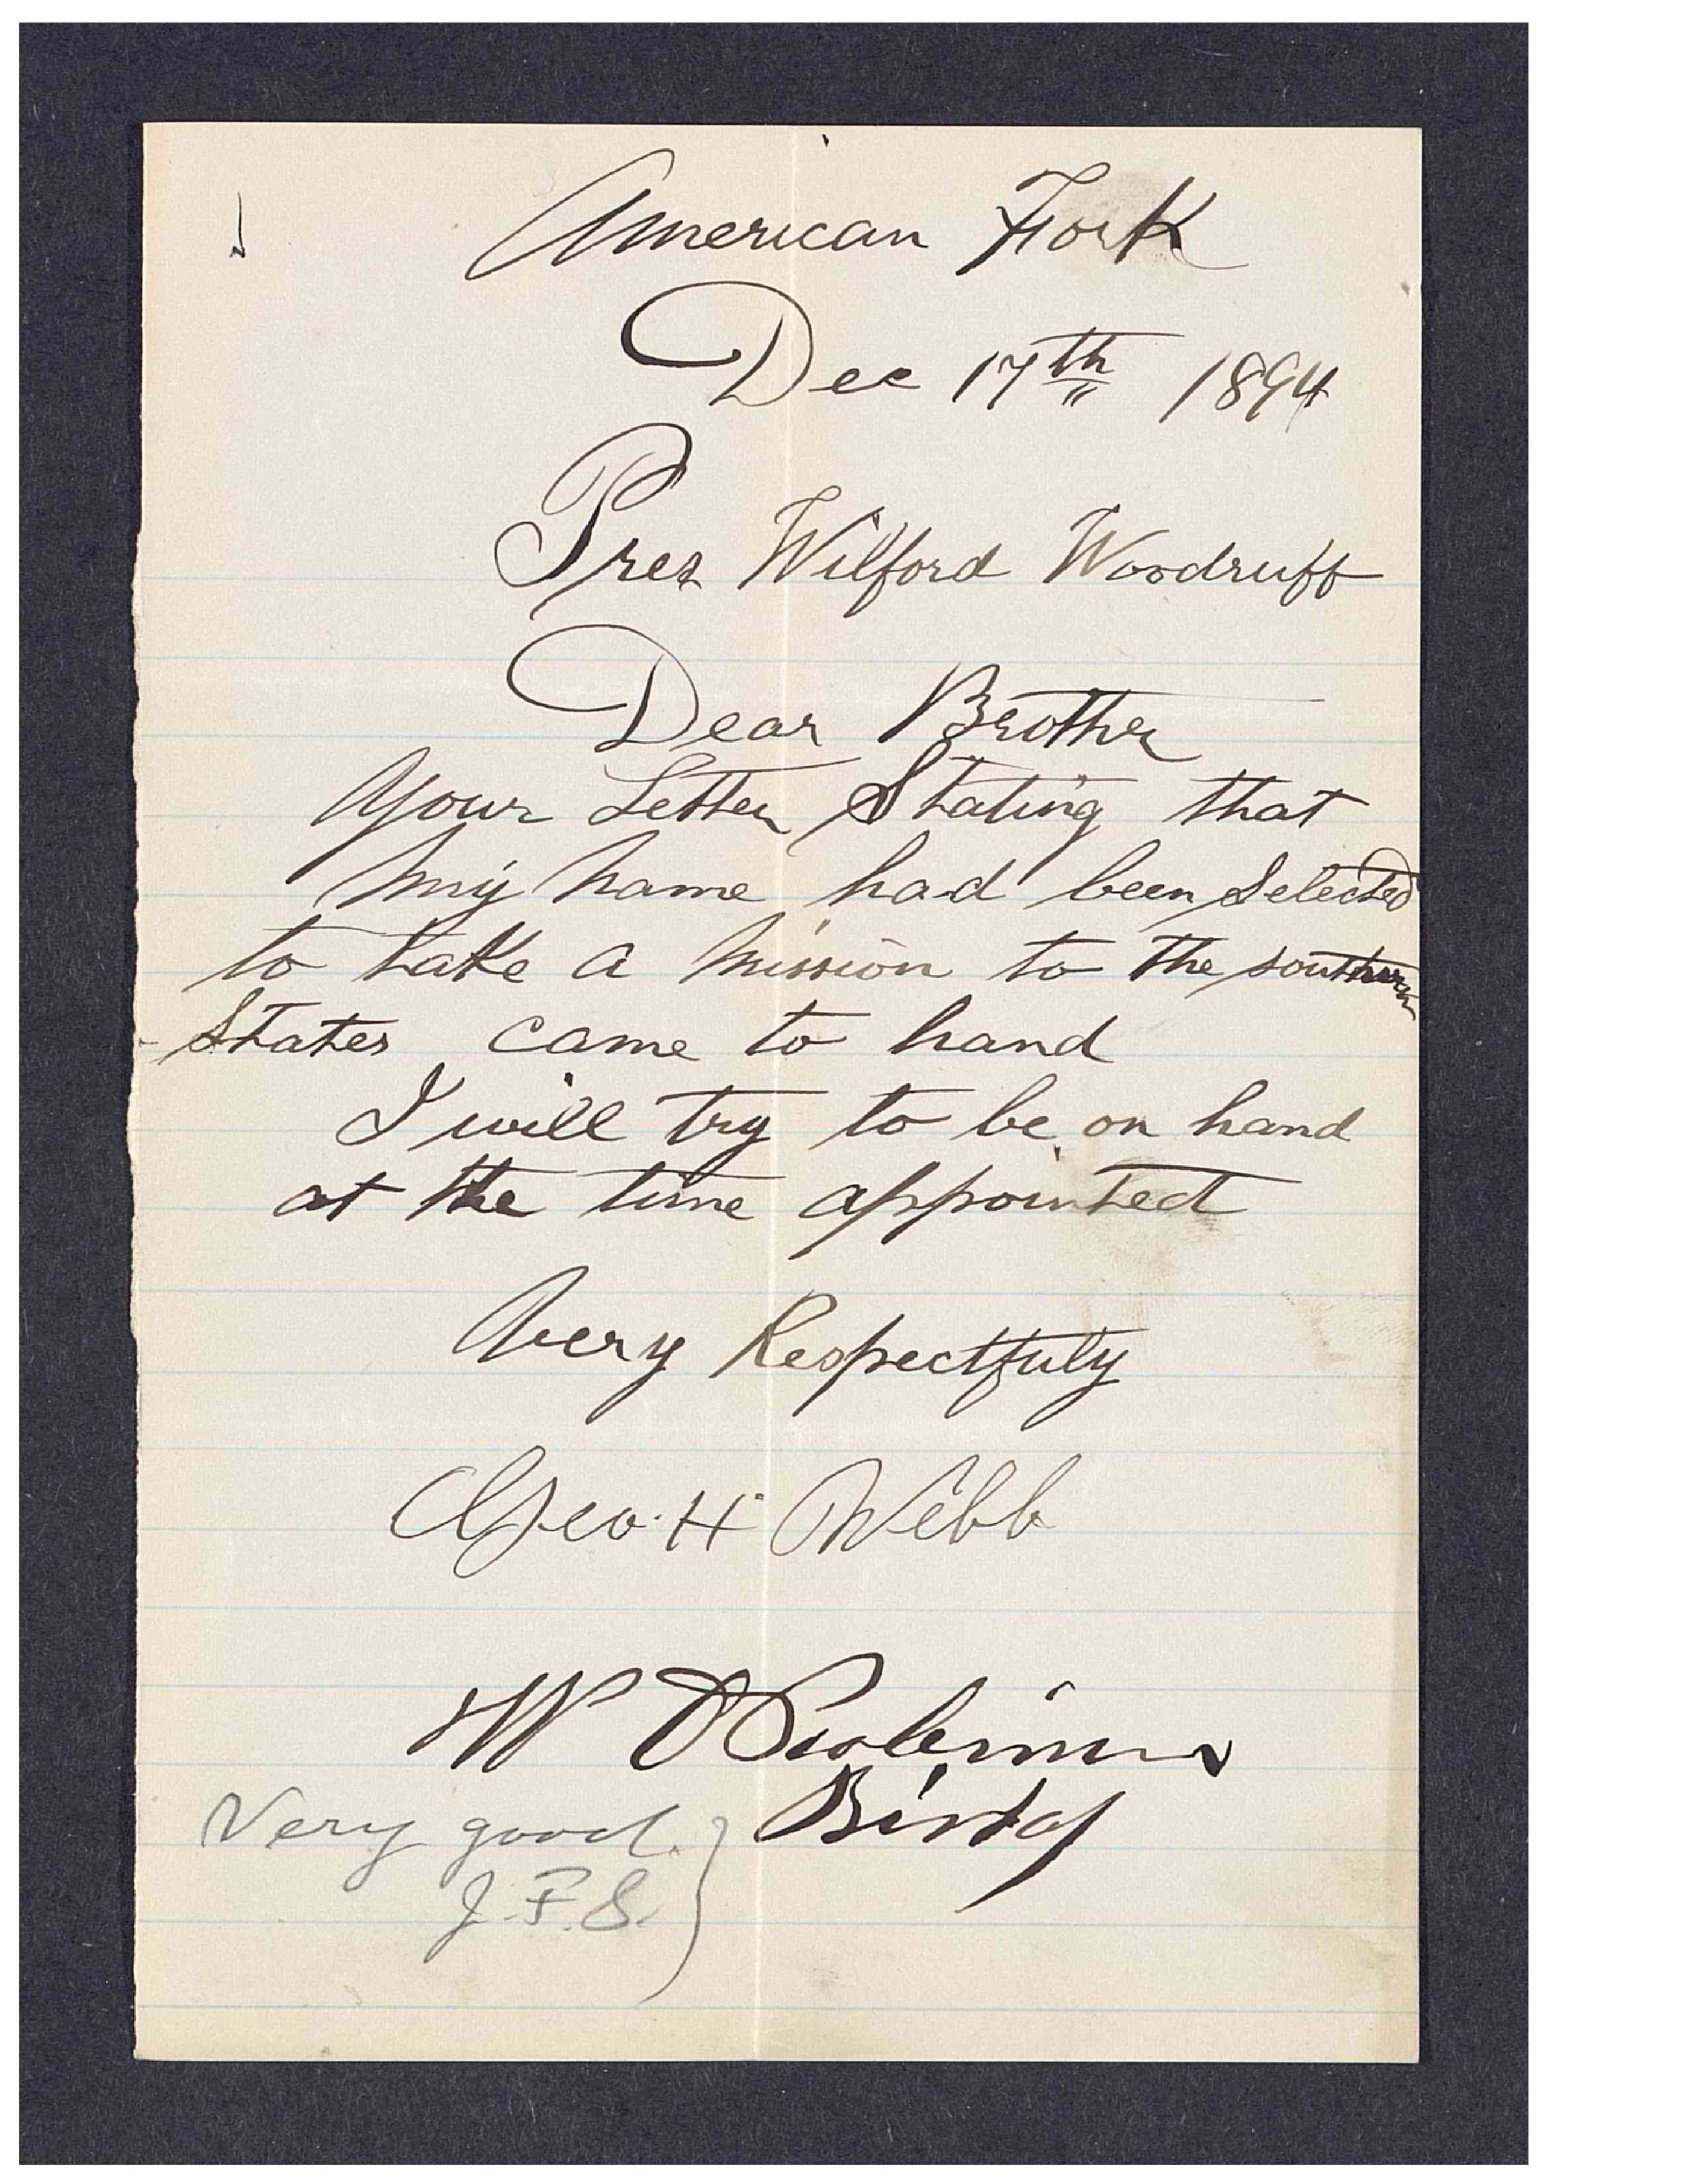 American Fork
Dec 17th 1894
Pres Wilford Woodruff
Dear Brother
Your Letter Stating that
my name had been Selected
to take a mission to the southern
States came to hand
I will try to be on hand
at the time appointed
Very Respectfuly
Geo. H. Webb
W D Robinson
Bishop
Very good.
J. F. S.